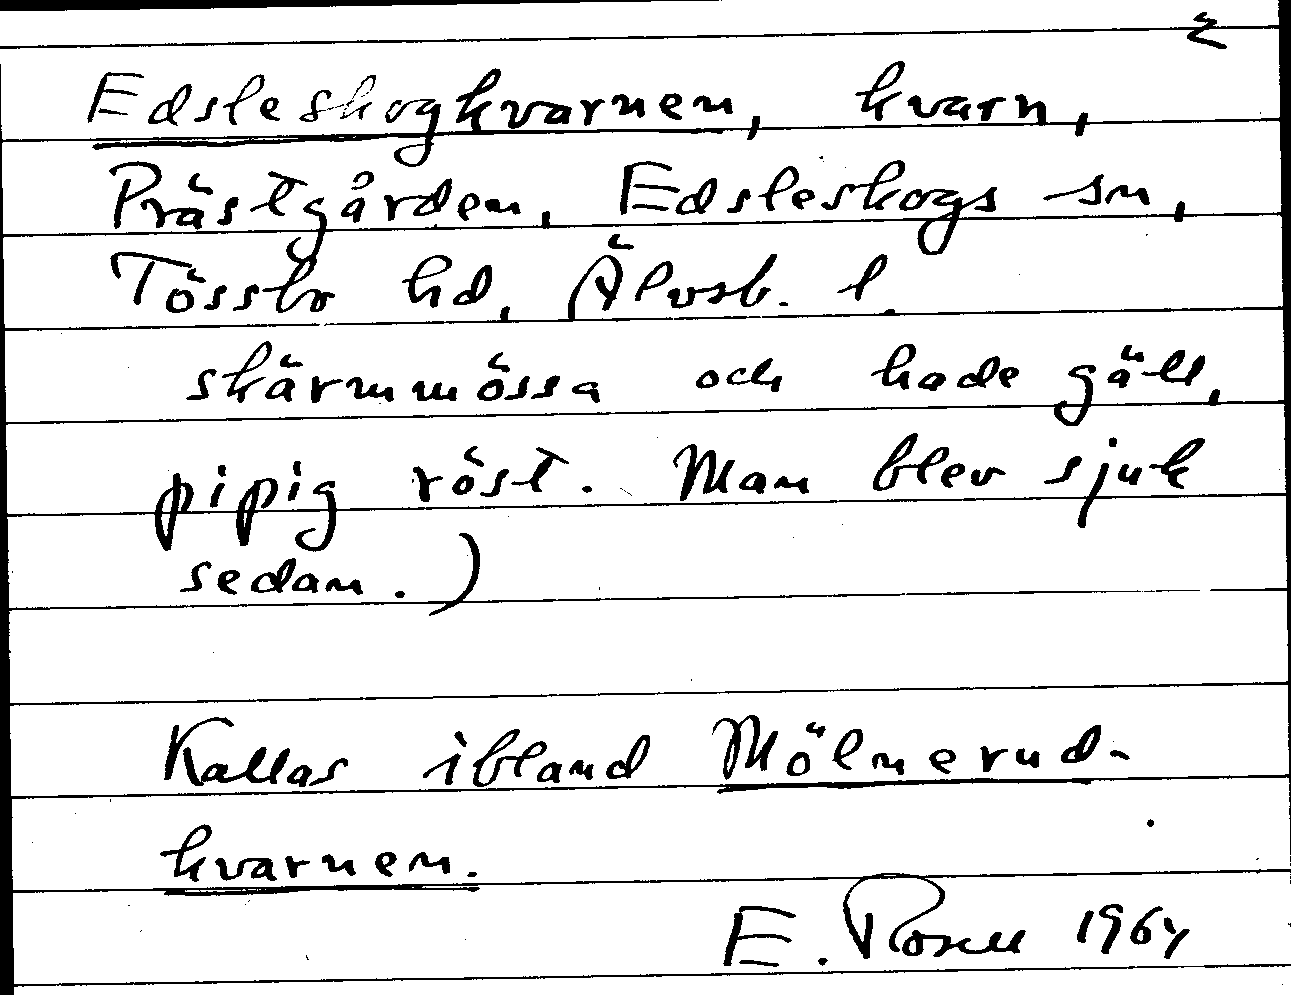 2
Edsleskogkvarnen, kvarn,
Prästgården, Edsleskogs sn,
Tössbo hd, Älvsb. l.
skärmmössa och hade gäll,
pipig röst. Man blev sjuk
sedan.)
Kallas ibland Mölnerud-
kvarnen.
E. Rosell 1964